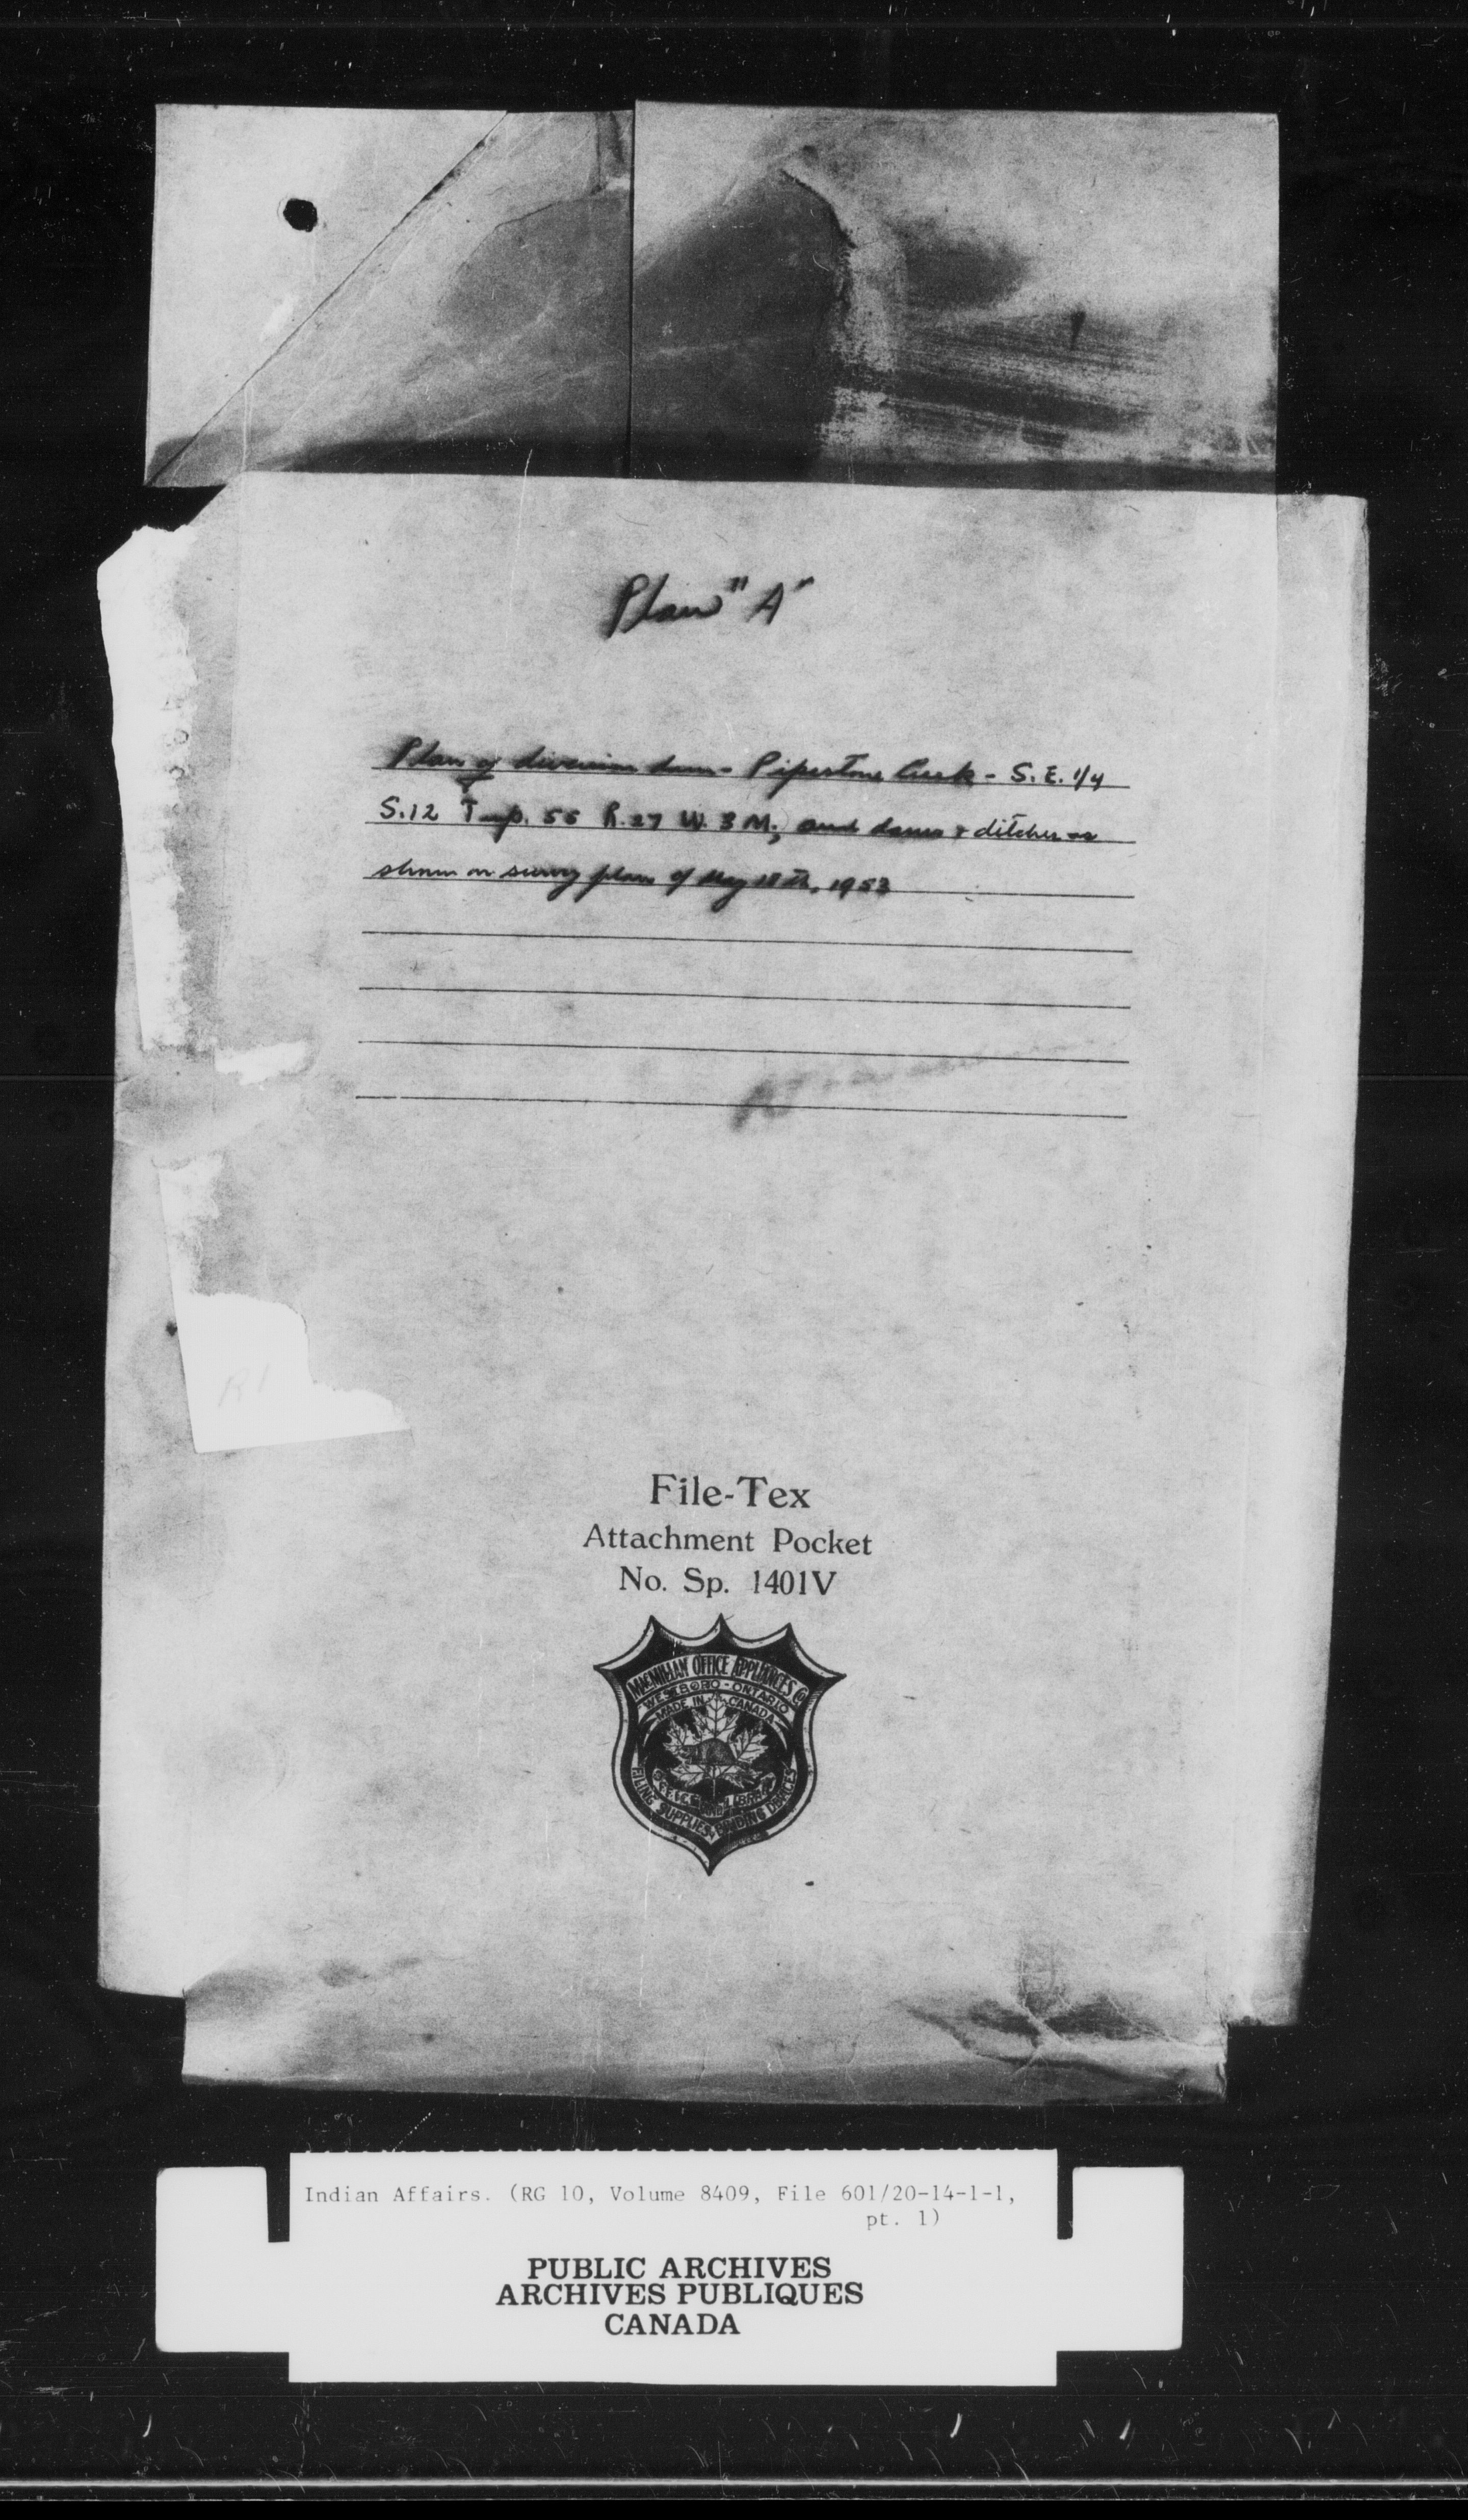 Plan "A"
Plan of diversion dam - Pipestone Creek - S.E. 1/4
S.12 Twp. 55 R.27 W. 3 M., and dams & ditches as
shown on survey plan of May 18th, 1953
R1
File-Tex
Attachment Pocket
No. Sp. 1401V
MACMILLAN OFFICE APPLIANCES CO
WESTBORO - ONTARIO
MADE IN CANADA
FILING SUPPLIES, BINDING DEVICES
Indian Affairs. (RG 10, Volume 8409, File 601/20-14-1-1,
pt. 1)
PUBLIC ARCHIVES
ARCHIVES PUBLIQUES
CANADA